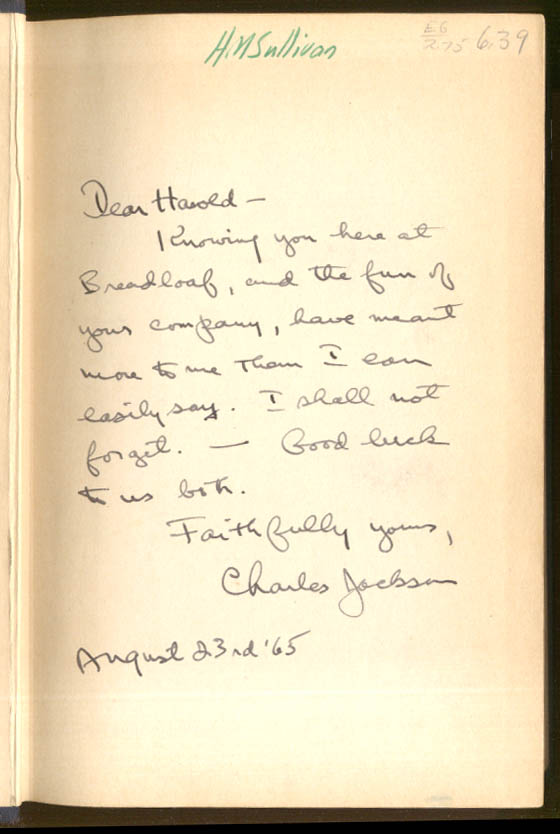 H.M Sullivan
E6
2.75 6.39
Dear Harold —
Knowing you here at
Breadloaf, and the fun of
your company, have meant
more to me than I can
easily say. I shall not
forget. — Good luck
to us both.
Faithfully yours,
Charles Jackson
August 23rd '65